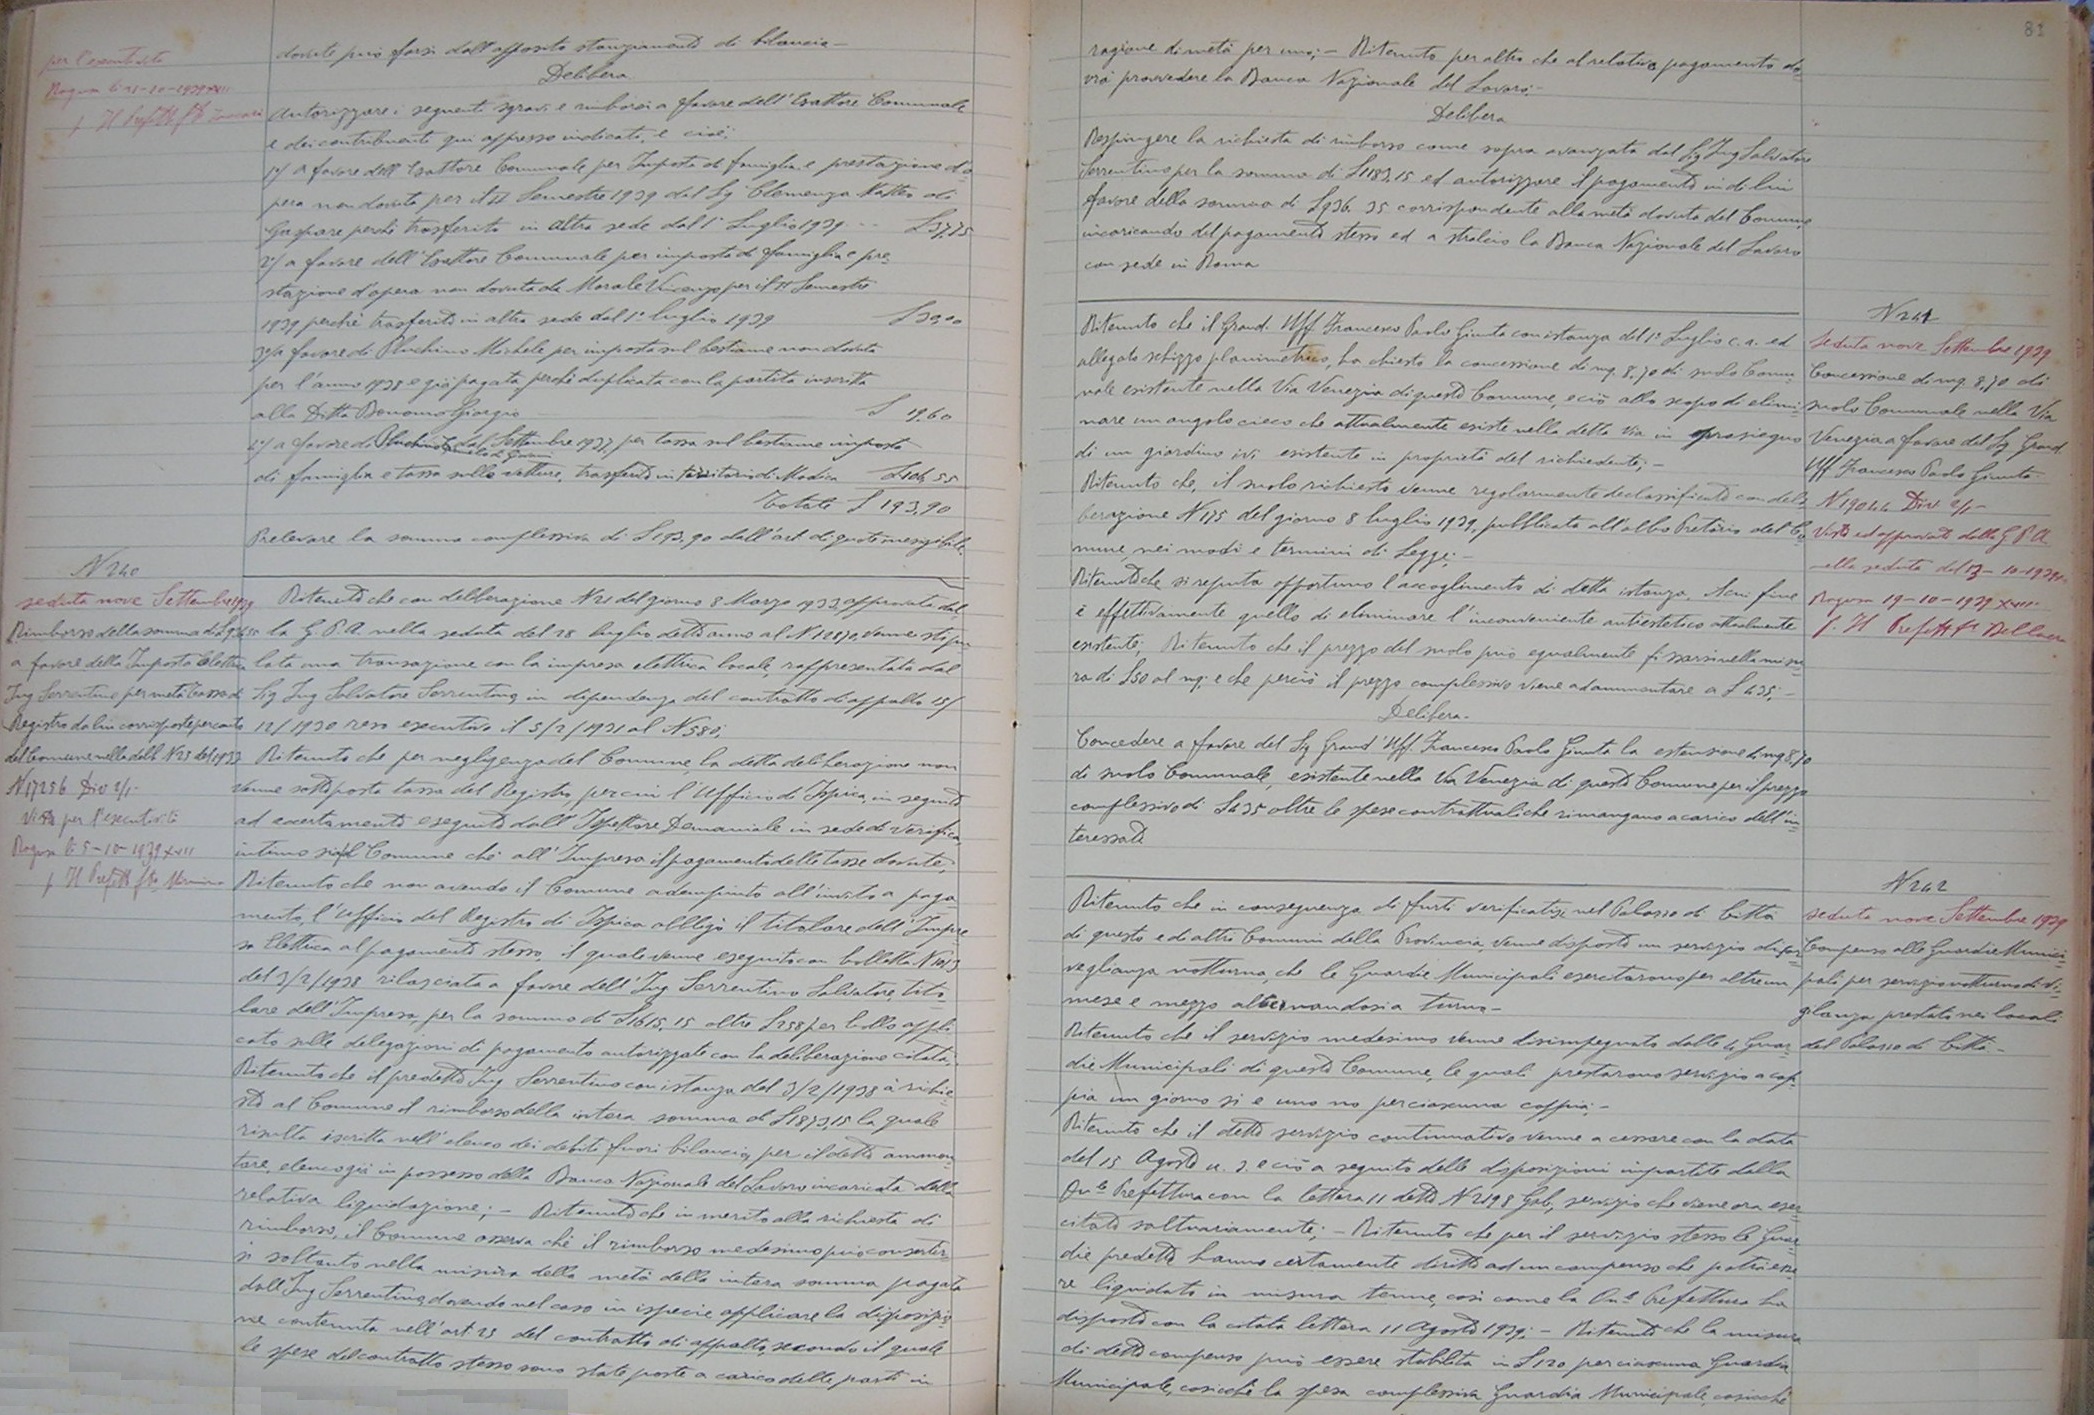 per l'esecutività
Ragusa li 21-10-1939 XVII
p. Il Prefetto f.to
dovute può farsi dall'apposito stanziamento di bilancio -
Delibera
Autorizzare i seguenti sgravi e rimborsi a favore dell'Esattore Comunale
e dei contribuenti qui appresso indicati, e cioè:
1°/ a favore dell'Esattore Comunale per Imposta di famiglia e prestazione d'o-
pera non dovuta per il II Semestre 1939 dal Sig Clemenza Matteo di
Gaspare perchè trasferito in altra sede dal 1° Luglio 1939 -- L 37,75
2°/ a favore dell'Esattore Comunale per imposta di famiglia e pre-
stazione d'opera non dovuta da Morale Vincenzo per il II Semestre
1939 perchè trasferito in altra sede dal 1° luglio 1939 L 30,00
3°/ a favore di Pluchino Michele per imposta sul bestiame non dovuta
per l'anno 1938 e già pagata perchè duplicata con la partita inscritta
alla Ditta Bonomo Giorgio L 19,60
4°/ a favore di Pluchino dal Settembre 1937, per tassa sul bestiame imposta
di famiglia e tassa sulle vetture, trasferito in territorio di Modica L 106,55
Totale L 193,90
Prelevare la somma complessiva di L 193,90 dall'art. di quote inesigibili.
N 240
seduta nove Settembre 1939
Rimborso della somma di L 936,35
a favore della Imposta Elettrica
Ing Sorrentino per metà Tassa di
Registro da lui corrisposte per conto
del Comune nella delib N 23 del 1933
N 17256 Div 2/1-
Visto per l'esecutività
Ragusa li 5-10-1939 XVII
p. Il Prefetto f.to
Ritenuto che con deliberazione N 21 del giorno 8 Marzo 1933, approvata dal-
la G. P. A. nella seduta del 28 luglio detto anno al N 12870, venne stipu-
lata una transazione con la impresa elettrica locale, rappresentata dal
Sig Ing Salvatore Sorrentino, in dipendenza del contratto di appalto 15/
12/1930 reso esecutivo il 5/2/1931 al N 580;
Ritenuto che per negligenza del Comune, la detta deliberazione non
venne sottoposta tassa del Registro, per cui l'Ufficio di Ispica, in seguito
ad accertamento eseguito dall'Ispettore Demaniale in sede di verifica,
intimò sia al Comune che all'Impresa il pagamento delle tasse dovute;
Ritenuto che non avendo il Comune adempiuto all'invito a paga-
mento, l'Ufficio del Registro di Ispica obbligò il titolare dell'Impre-
sa Elettrica al pagamento stesso, il quale venne eseguito con bolletta N 1013
del 3/2/1938 rilasciata a favore dell'Ing Sorrentino Salvatore, tito-
lare dell'Impresa, per la somma di L 1615,15 oltre L 258 per bollo appli-
cato sulle delegazioni di pagamento autorizzate con la deliberazione citata;
Ritenuto che il predetto Ing Sorrentino con istanza del 3/2/1938 à richie-
sto al Comune il rimborso della intera somma di L 1873,15 la quale
risulta iscritta nell'elenco dei debiti fuori bilancio, per il detto ammon-
tare, elenco già in possesso della Banca Nazionale del Lavoro incaricata della
relativa liquidazione; - Ritenuto che in merito alla richiesta di
rimborso, il Comune osserva che il rimborso medesimo può consentir-
si soltanto nella misura della metà della intera somma pagata
dall'Ing Sorrentino, dovendo nel caso in ispecie applicare la disposizio-
ne contenuta nell'art 23 del contratto di appalto, secondo il quale
le spese del contratto stesso sono state poste a carico delle parti in
81
ragione di metà per una; - Ritenuto per altro che al relativo pagamento do-
vrà provvedere la Banca Nazionale del Lavoro;-
Delibera
Respingere la richiesta di rimborso come sopra avanzata dal Sig Ing Salvatore
Sorrentino per la somma di L 1183,15 ed autorizzare il pagamento in di lui
favore della somma di L 936,35 corrispondente alla metà dovuta dal Comune,
incaricando del pagamento stesso ed a stralcio la Banca Nazionale del Lavoro
con sede in Roma
Ritenuto che il Grand. Uff Francesco Paolo Giunta con istanza del 1° Luglio c. a. ed
allegato schizzo planimetrico, ha chiesto la concessione di mq. 8,70 di suolo Comu-
nale esistente nella Via Venezia di questo Comune, e ciò allo scopo di elimi-
nare un angolo cieco che attualmente esiste nella detta via in prosieguo
di un giardino ivi esistente in proprietà del richiedente; -
Ritenuto che, il suolo richiesto venne regolarmente declassificato con deli-
berazione N 175 del giorno 8 luglio 1939, pubblicata all'albo Pretorio del Co-
mune, nei modi e termini di Legge; -
Ritenuto che si reputa opportuno l'accoglimento di detta istanza, il cui fine
è effettivamente quello di eliminare l'inconveniente antiestetico attualmente
esistente; Ritenuto che il prezzo del suolo può egualmente fissarsi nella misu-
ra di L 50 al mq. e che perciò il prezzo complessivo viene ad ammontare a L 435; -
Delibera-
Concedere a favore del Sig Grand. Uff. Francesco Paolo Giunta la estensione di mq 8,70
di suolo Comunale, esistente nella Via Venezia di questo Comune per il prezzo
complessivo di L 435 oltre le spese contrattuali che rimangono a carico dell'in-
teressato
N 241
seduta nove Settembre 1939
Concessione di mq. 8,70 di
suolo Comunale nella Via
Venezia a favore del Sig Grand
Uff Francesco Paolo Giunta
N 19044 Div 2/1-
Visto ed approvato dalla G. P. A.
nella seduta del 13-10-1939
Ragusa 19-10-1939 XVII
p. Il Prefetto f.to
Ritenuto che in conseguenza di furti verificatisi nel Palazzo di Città
di questo e di altri Comuni della Provincia, venne disposto un servizio di sor-
veglianza notturna, che le Guardie Municipali esercitarono per oltre un
mese e mezzo alternandosi a turno -
Ritenuto che il servizio medesimo venne disimpegnato dalle 4 Guar-
die Municipali di questo Comune, le quali prestarono servizio a cop-
pia un giorno si e uno no per ciascuna coppia; -
Ritenuto che il detto servizio continuativo venne a cessare con la data
del 15 Agosto u. s. e ciò a seguito delle disposizioni impartite dalla
On.le Prefettura con la lettera 11 detto N 2198 Gab, servizio che viene ora eser-
citato saltuariamente; - Ritenuto che per il servizio stesso le Guar-
die predette hanno certamente diritto ad un compenso che potrà esse-
re liquidato in misura tenue, così come la On.le Prefettura ha
disposto con la citata lettera 11 Agosto 1939; - Ritenuto che la misura
di detto compenso può essere stabilita in L 120 per ciascuna Guardia
Municipale, cosicchè la spesa complessiva Guardia Municipale, cosicchè
N 242
seduta nove Settembre 1939
Compenso alle Guardie Munici-
pali per servizio notturno di Vi-
gilanza prestato nei locali
del Palazzo di Città -